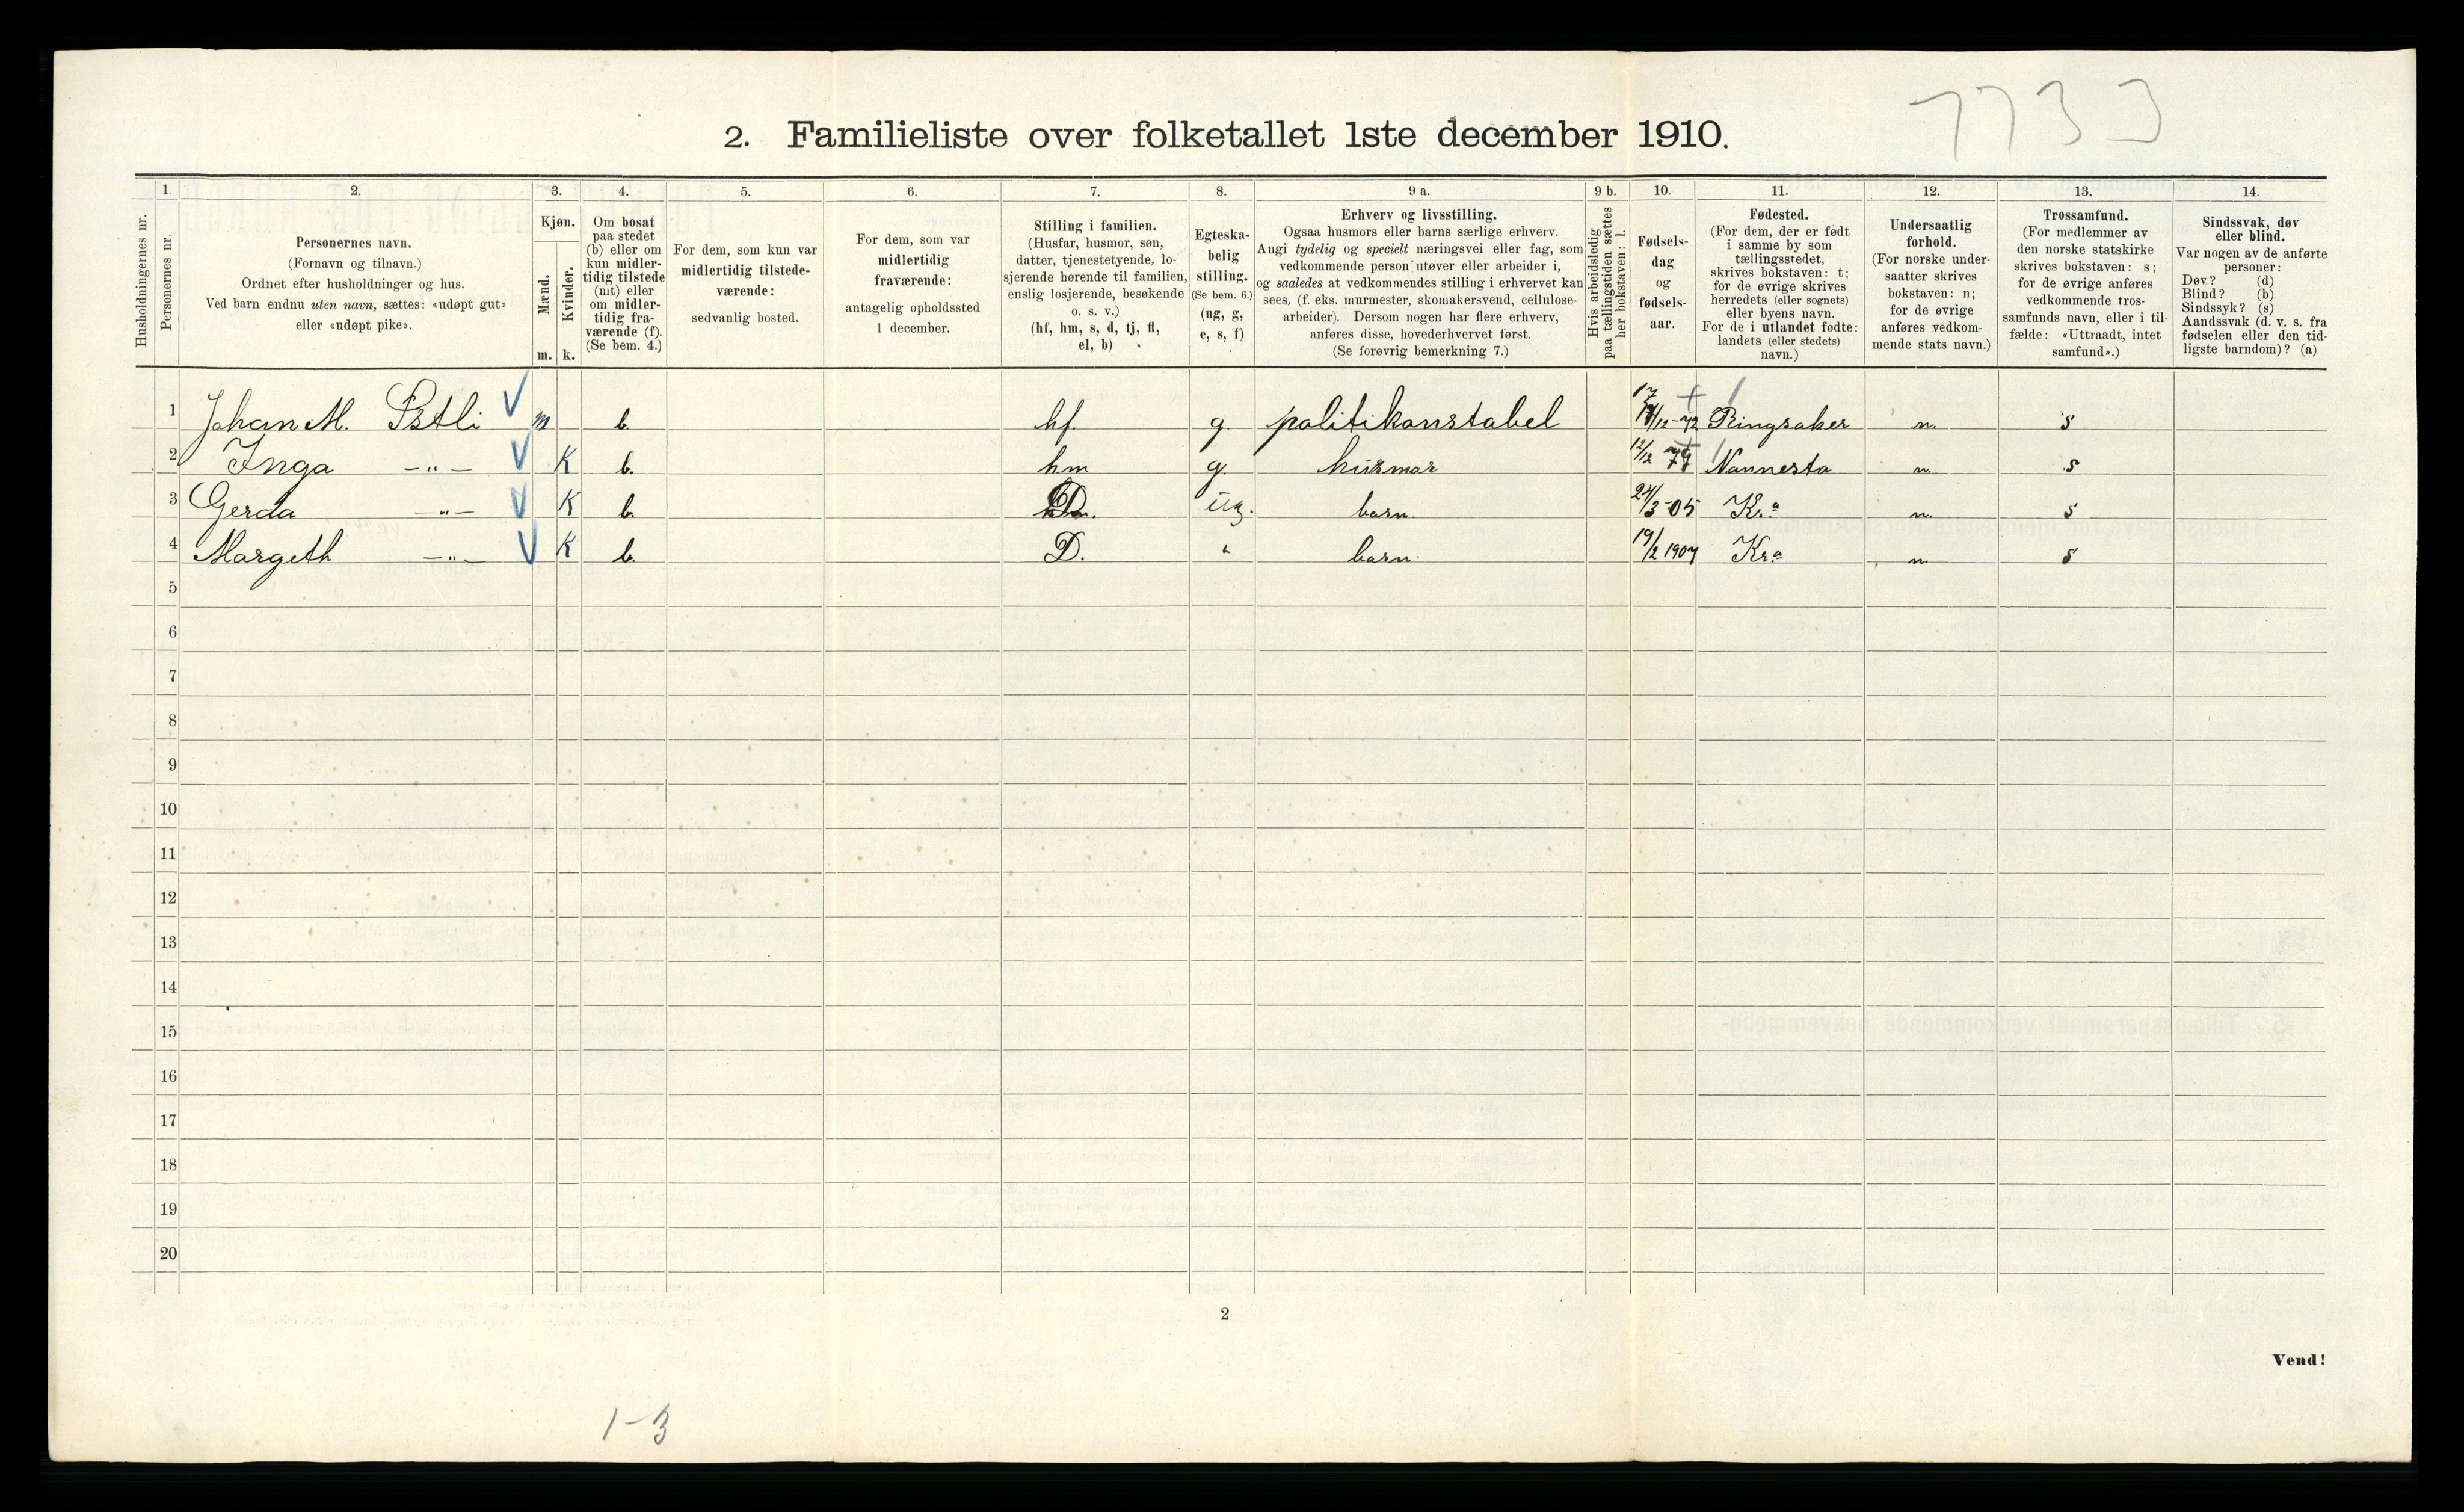 7733
2. Familieliste over folketallet 1ste december 1910.
1. 2. 3. 4. 5. 6. 7. 8. 9 a. 9 b. 10. 11. 12. 13. 14.
Husholdningernes nr.
Personernes nr.
Personernes navn.
(Fornavn og tilnavn.)
Ordnet efter husholdninger og hus.
Ved barn endnu uten navn, sættes: «udøpt gut»
eller «udøpt pike».
Kjøn.
Mænd.
Kvinder.
m. k.
Om bosat
paa stedet
(b) eller om
kun midler-
tidig tilstede
(mt) eller
om midler-
tidig fra-
værende (f).
(Se bem. 4.)
For dem, som kun var
midlertidig tilstede-
værende:
sedvanlig bosted.
For dem, som var
midlertidig
fraværende:
antagelig opholdssted
1 december.
Stilling i familien.
(Husfar, husmor, søn,
datter, tjenestetyende, lo-
sjerende hørende til familien,
enslig losjerende, besøkende
o. s. v.)
(hf, hm, s, d, tj, fl,
el, b)
Egteska-
belig
stilling.
(Se bem. 6.)
(ug, g,
e, s, f)
Erhverv og livsstilling.
Ogsaa husmors eller barns særlige erhverv.
Angi tydelig og specielt næringsvei eller fag, som
vedkommende person utøver eller arbeider i,
og saaledes at vedkommendes stilling i erhvervet kan
sees, (f. eks. murmester, skomakersvend, cellulose-
arbeider). Dersom nogen har flere erhverv,
anføres disse, hovederhvervet først.
(Se forøvrig bemerkning 7.)
Hvis arbeidsledig
paa tællingstiden sættes
her bokstaven: l.
Fødsels-
dag
og
fødsels-
aar.
Fødested.
(For dem, der er født
i samme by som
tællingsstedet,
skrives bokstaven: t;
for de øvrige skrives
herredets (eller sognets)
eller byens navn.
For de i utlandet fødte:
landets (eller stedets)
navn.)
Undersaatlig
forhold.
(For norske under-
saatter skrives
bokstaven: n;
for de øvrige
anføres vedkom-
mende stats navn.)
Trossamfund.
(For medlemmer av
den norske statskirke
skrives bokstaven: s;
for de øvrige anføres
vedkommende tros-
samfunds navn, eller i til-
fælde: «Uttraadt, intet
samfund».)
Sindssvak, døv
eller blind.
Var nogen av de anførte
personer:
Døv? (d)
Blind? (b)
Sindssyk? (s)
Aandssvak (d. v. s. fra
fødselen eller den tid-
ligste barndom)? (a)
1 Johan M. m b. hf. g politikonstabel Ringsaker n. s
2 Inga -"- K b. hm g. husmor 12/12 Nannesta n. s
3 Gerda -"- K b. D. ug. barn. 24/3-05 Kr.a n. s
4 Margeth -"- K b. D. " barn. 19/2 1907 Kr.a n. s
5
6
7
8
9
10
11
12
13
14
15
16
17
18
19
20
2
Vend!
1-3